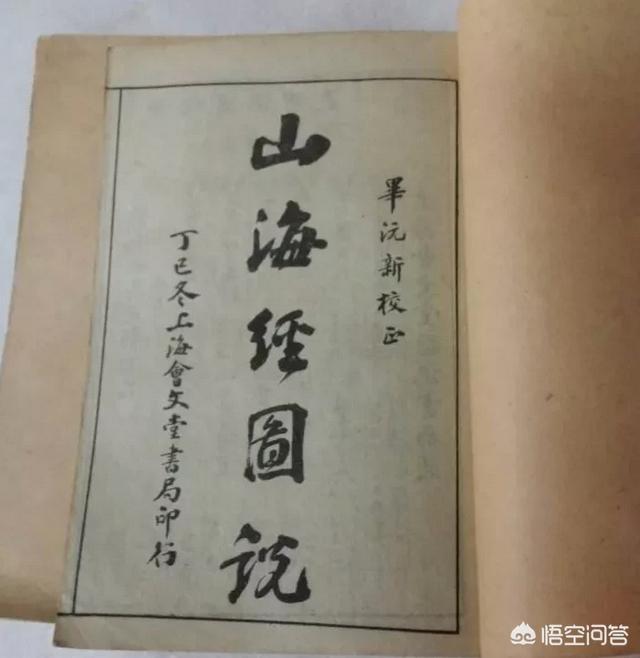 畢沅新校正
山海經圖說
丁巳冬上海會文堂書局印行
悟空问答